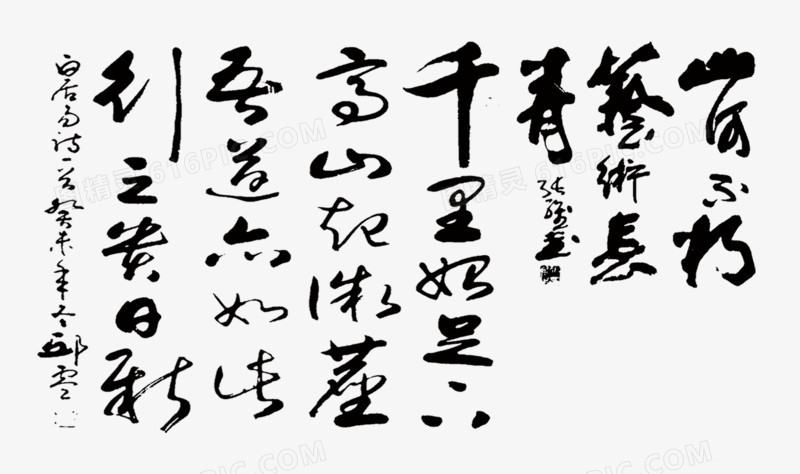 山河不朽
藝術長
青
千里始足下
高山起微塵
吾道亦如此
行之貴日新
白居易诗一首 癸未年冬